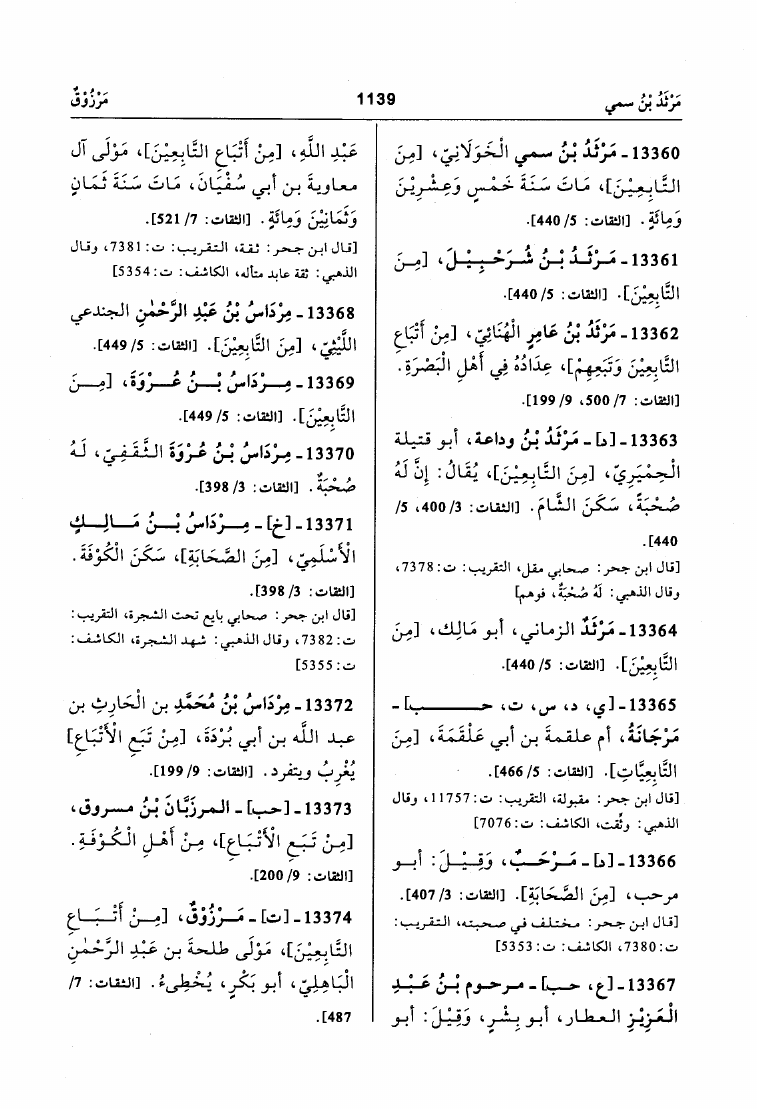 مَرْثَدُ بْنُ سمي
1139
مَرْزُوْقٌ
13360- مَرْثَدُ بْنُ سمي الْخَوْلَانِيّ، [مِنَ
التَّابِعِيْنَ]، مَاتَ سَنَةَ خَمْسٍ وَعِشْرِيْنَ
وَمِائَةٍ. [الثقات: 5/ 440].
13361- مَرْثَدُ بْنُ شَرَحْبِيْلَ، [مِنَ
التَّابِعِيْنَ]. [الثقات: 5/ 440].
13362- مَرْثَدُ بْنُ عَامِرٍ الْهُنَائِيّ، [مِنْ أَتْبَاعِ
التَّابِعِيْنَ وَتَبَعِهِمْ]، عِدَادُهُ فِي أَهْلِ الْبَصْرَةِ.
[الثقات: 7/ 500، 9/ 199].
13363- [د] - مَرْثَدُ بْنُ وداعة، أبو قتيلة
الْحِمْيَرِيّ، [مِنَ التَّابِعِيْنَ]، يُقَالُ: إِنَّ لَهُ
صُحْبَةً، سَكَنَ الشَّامَ. [الثقات: 3/ 400، 5/
440].
[قال ابن حجر: صحابي مقل، التقريب: ت: 7378،
وقال الذهبي: لَهُ صُحْبَةٌ، فوهم]
13364- مَرْثَدٌ الزماني، أبو مَالِك، [مِنَ
التَّابِعِيْنَ]. [الثقات: 5/ 440].
13365- [ي، د، س، ت، حب] -
مَرْجَانَةُ، أم علقمة بن أبي عَلْقَمَةَ، [مِنَ
التَّابِعِيَّاتِ]. [الثقات: 5/ 466].
[قال ابن حجر: مقبولة، التقريب: ت: 11757، وقال
الذهبي: وثقت، الكاشف: ت: 7076]
13366- [د] - مَرْحَبٌ، وَقِيْلَ: أبو
مرحب، [مِنَ الصَّحَابَةِ]. [الثقات: 3/ 407].
[قال ابن حجر: مختلف في صحبته، التقريب:
ت: 7380، الكاشف: ت: 5353]
13367- [ع، حب] - مرحوم بْنُ عَبْدِ
الْعَزِيْزِ العطار، أبو بِشْرٍ، وَقِيْلَ: أبو
عَبْدِ اللَّهِ، [مِنْ أَتْبَاعِ التَّابِعِيْنَ]، مَوْلَى آل
معاوية بن أبي سُفْيَانَ، مَاتَ سَنَةَ ثَمَانٍ
وَثَمَانِيْنَ وَمِائَةٍ. [الثقات: 7/ 521].
[قال ابن حجر: ثقة، التقريب: ت: 7381، وقال
الذهبي: ثقة عابد متأله، الكاشف: ت: 5354]
13368- مِرْدَاسُ بْنُ عَبْدِ الرَّحْمٰنِ الجندعي
اللَّيْثِيّ، [مِنَ التَّابِعِيْنَ]. [الثقات: 5/ 449].
13369- مِرْدَاسُ بْنُ عُرْوَةَ، [مِنَ
التَّابِعِيْنَ]. [الثقات: 5/ 449].
13370- مِرْدَاسُ بْنُ عُرْوَةَ الثَّقَفِيّ، لَهُ
صُحْبَةٌ. [الثقات: 3/ 398].
13371- [خ] - مِرْدَاسُ بْنُ مَالِكٍ
الْأَسْلَمِيّ، [مِنَ الصَّحَابَةِ]، سَكَنَ الْكُوْفَةَ.
[الثقات: 3/ 398].
[قال ابن حجر: صحابي بايع تحت الشجرة، التقريب:
ت: 7382، وقال الذهبي: شهد الشجرة، الكاشف:
ت: 5355]
13372- مِرْدَاسُ بْنُ مُحَمَّدِ بن الْحَارِثِ بن
عبد الله بن أبي بُرْدَةَ، [مِنْ تَبَعِ الْأَتْبَاعِ]
يُغْرِبُ ويتفرد. [الثقات: 9/ 199].
13373- [حب] - المرزبَّان بْنُ مسروق،
[مِنْ تَبَعِ الْأَتْبَاعِ]، مِنْ أَهْلِ الْكُوْفَةِ.
[الثقات: 9/ 200].
13374- [ت] - مَرْزُوْقٌ، [مِنْ أَتْبَاعِ
التَّابِعِيْنَ]، مَوْلَى طلحة بن عَبْدِ الرَّحْمٰنِ
الْبَاهِلِيّ، أبو بَكْرٍ، يُخْطِىءُ. [الثقات: 7/
487].